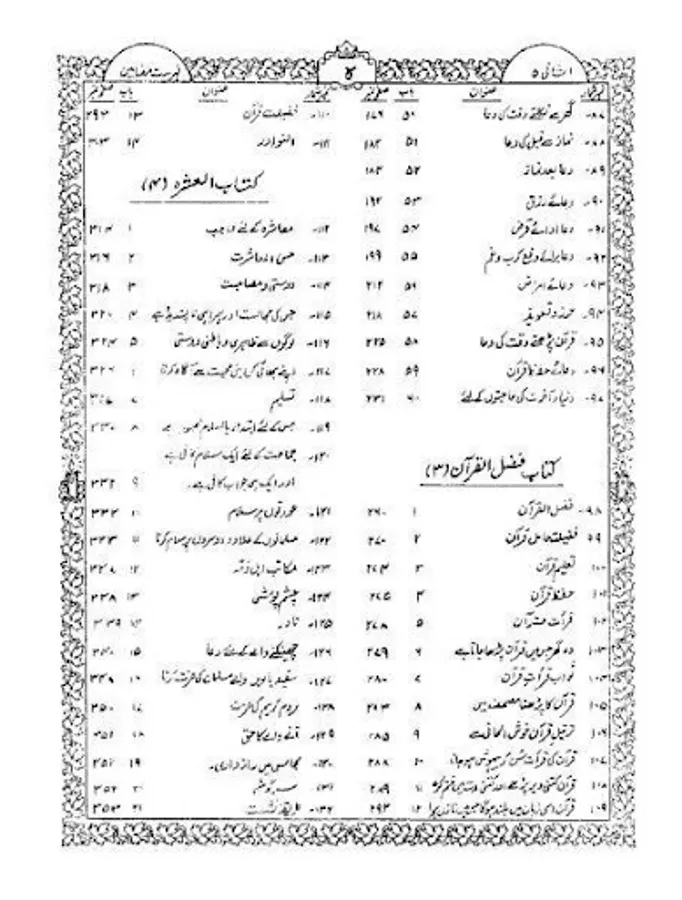 الشافی ۵
۴
فہرست مضامین
نمبرشمار عنوان باب صفحہ نمبر
۸۷۔ گھر سے نکلتے وقت کی دعا ۵۰ ۱۷۶
۸۸۔ نماز سے قبل کی دعا ۵۱ ۱۸۲
۸۹۔ دعا بعد نماز ۵۲ ۱۸۳
۹۰۔ دعائے رزق ۵۳ ۱۹۲
۹۱۔ دعا ادائے قرض ۵۴ ۱۹۷
۹۲۔ دعا برائے دفع کرب و غم ۵۵ ۱۹۹
۹۳۔ دعائے امراض ۵۶ ۲۱۲
۹۴۔ حرز و تعویذ ۵۷ ۲۱۸
۹۵۔ قرآن پڑھتے وقت کی دعا ۵۸ ۲۲۵
۹۶۔ دعائے حفظ قرآن ۵۹ ۲۲۸
۹۷۔ دنیا و آخرت کی حاجتوں کے لئے ۶۰ ۲۳۱
کتاب فضل القرآن (۳)
۹۸۔ فضل القرآن ۱ ۲۶۰
۹۹ فضیلت حامل قرآن ۲ ۲۷۰
۱۰۰ تعلیم قرآن ۳ ۲۷۴
۱۰۱ حفظ قرآن ۴ ۲۷۵
۱۰۲ قرأت قرآن ۵ ۲۷۸
۱۰۳ وہ گھر جس میں قرآن پڑھا جاتا ہے ۶ ۲۷۹
۱۰۴ ثواب قرأت قرآن ۷ ۲۸۰
۱۰۵ قرآن کا پڑھنا مصحف میں ۸ ۲۸۳
۱۰۶ ترتیل قرآن خوش الحانی سے ۹ ۲۸۵
۱۰۷ قرآن کی قرأت سن کر بیہوش ہو جانا ۱۰ ۲۸۸
۱۰۸ قرآن کتنی دیر پڑھے اور کتنی ختم کرے ۱۱ ۲۸۹
۱۰۹ قرآن اسی زبان میں بلند ہوگا جس میں نازل ہوا ۱۲ ۲۹۲
نمبرشمار عنوان باب صفحہ نمبر
۱۱۰۔ فضیلت قرآن ۱۳ ۲۹۳
۱۱۱۔ النوادر ۱۴ ۳۰۳
کتاب العشرہ (۴)
۱۱۲۔ معاشرہ کے لئے واجب ۱ ۳۱۴
۱۱۳۔ حسن معاشرت ۲ ۳۱۶
۱۱۴۔ دوستی و مصاحبت ۳ ۳۱۸
۱۱۵۔ جس کی مجالست اور ہمراہی ناپسندیدہ ہے ۴ ۳۲۰
۱۱۶۔ لوگوں سے ظاہری و باطنی دوستی ۵ ۳۲۴
۱۱۷۔ اپنے بھائی کو اپنی محبت سے آگاہ کرنا ۶ ۳۲۶
۱۱۸۔ تسلیم ۷
۱۱۹۔ جس کے لئے ابتدا بالسلام ۸ ۳۳۰
۱۲۰۔ جماعت کے لئے ایک سلام کافی ہے
اور ایک ہی جواب کافی ہے۔ ۹ ۳۳۲
۱۲۱۔ عورتوں پر سلام ۱۰ ۳۳۳
۱۲۲۔ مسلمانوں کے علاوہ دوسروں پر سلام کرنا ۱۱ ۳۳۳
۱۲۳۔ مکاتب اہل ذمہ ۱۲ ۳۳۸
۱۲۴۔ چشم پوشی ۱۳ ۳۳۸
۱۲۵۔ نادر ۱۴ ۳۳۹
۱۲۶۔ چھینکنے والے کے لئے دعا ۱۵ ۳۴۰
۱۲۷۔ سفید بالوں والے مسلمان کی عزت کرنا ۱۶ ۳۴۹
۱۲۸۔ مرد کریم کی عزت ۱۷ ۳۵۰
۱۲۹۔ آنے والے کا حق ۱۸ ۳۵۱
۱۳۰۔ مجالس میں رازداری۔ ۱۹ ۳۵۲
۱۳۱۔ سرگوشی ۲۰ ۳۵۲
۱۳۲۔ طریقہ نشست ۲۱ ۳۵۳